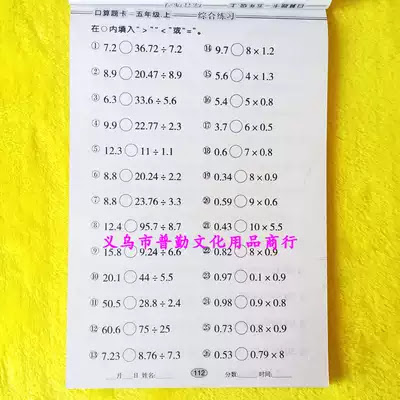 口算题卡-五年级 上 ——综合练习
在○内填入“>”“<”或“=”。
① 7.2 ○ 36.72÷7.2
② 8.9 ○ 20.47÷8.9
③ 6.3 ○ 33.6÷5.6
④ 9.9 ○ 22.77÷2.3
⑤ 12.3 ○ 11÷1.1
⑥ 8.8 ○ 20.24÷2.2
⑦ 8.8 ○ 23.76÷3.3
⑧ 12.4 ○ 95.7÷8.7
⑨ 15.8 ○ 9.24÷6.6
⑩ 20.1 ○ 44÷5.5
⑪ 50.5 ○ 28.8÷2.4
⑫ 60.6 ○ 75÷25
⑬ 7.23 ○ 8.76÷7.3
⑭ 9.7 ○ 8×1.2
⑮ 5.6 ○ 4×1.3
⑯ 5.4 ○ 5×0.8
⑰ 3.7 ○ 6×0.5
⑱ 0.6 ○ 7×0.8
⑲ 0.34 ○ 8×0.9
⑳ 0.59 ○ 9×0.6
㉑ 0.43 ○ 10×5.5
㉒ 0.82 ○ 8×0.9
㉓ 0.97 ○ 0.1×0.9
㉔ 0.98 ○ 0.9×0.8
㉕ 0.73 ○ 0.8×0.9
㉖ 0.53 ○ 0.79×8
义乌市普勤文化用品商行
___月___日 姓名:______ 112 分数:______时间:______